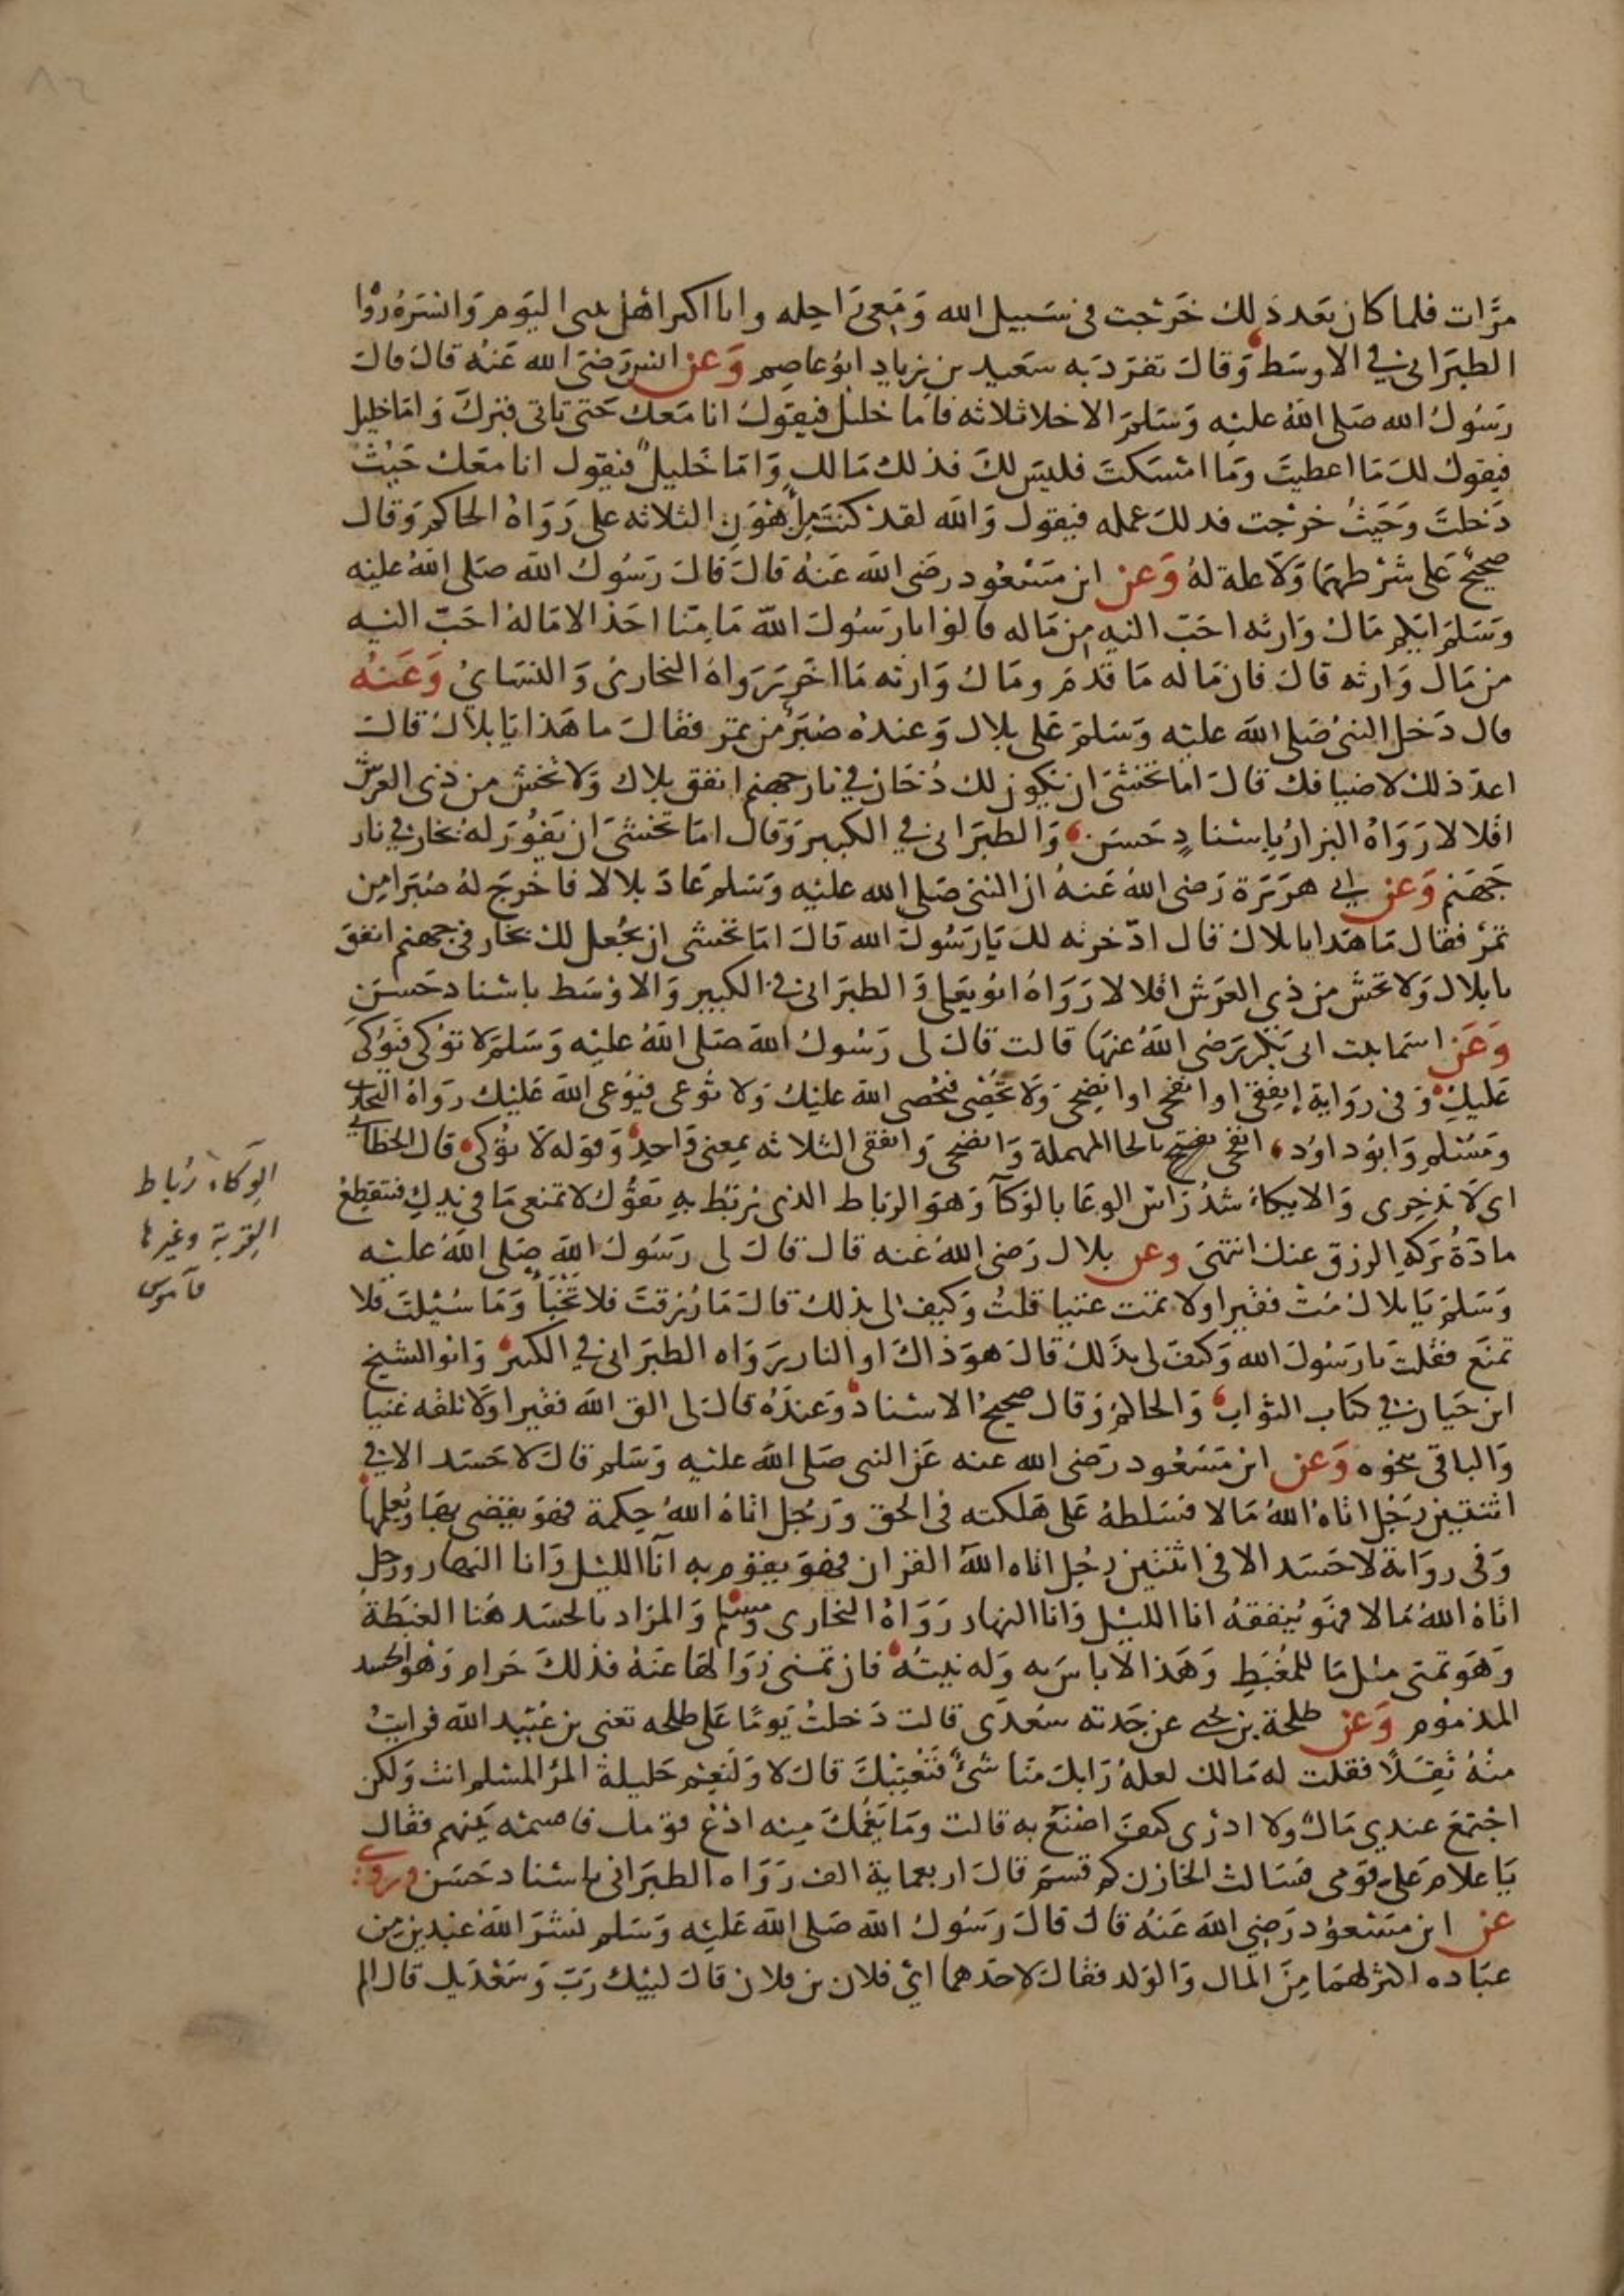 مرَّات فلما كان بَعد ذَلك خَرَجت في سَبيل الله وَمَعى رَاحله وانا اكبر اهل بيتى اليَوم وَانسَره روا
الطبَرانى في الاوسَط وَقالَ تفرّدَ به سَعيد بن زياد ابُو عاصِم وَعن انس رَضىَ الله عَنهُ قالَ قالَ
رَسُولُ الله صَلى اللهُ عليْه وَسَلمَ الاخلا ثلاثه فاما خليل فيقولُ انا مَعكَ حَتى تاتى قبركَ وَامَا خليل
فيقولُ لكَ مَا اعطيتَ وَمَا امْسَكتَ فليسَ لكَ فذلك مَالك وَامَا خَليل فيقول انا معَك حَيْثُ
دَخلتَ وَحَيثُ خرَجت فذلكَ عمله فيقول وَالله لقد كنتَ من اهْوَن الثلاثه على رَوَاهُ الحاكم وَقال
صحيحٌ عَلى شرْطهمَا وَلا علة لهُ وَعن ابن مسْعُود رضى الله عَنهُ قالَ قالَ رَسُولُ الله صَلى اللهُ عليْه
وَسَلمَ ايكم مَالُ وَارثه احَبّ اليْه من مَاله قالوُا يا رَسُولَ اللهِ مَا مِنا احَدٌ الا مَالهُ احَبّ اليْه
من مَال وَارثه قالَ فان مَاله مَا قدمَ ومَالُ وَارثه مَا اخرَ رَوَاهُ البخارىُ وَالنسَائ وَعَنْه
قال دَخل النبىُ صَلى الله عليْه وَسَلمَ عَلى بلال وَعندهُ صُبَرٌ من تمر فقالَ ما هَذا يَا بلالُ قالَ
اعدّ ذلكَ لاضيافك قالَ اما تَخشَى ان يكون لك دُخَان في نار جهنم انفق بلال وَلا تَخش من ذى العرش
اقلالا رَوَاهُ البزارُ بإسْنادٍ حَسَن وَالطبَرانى في الكبير وَقال امَا تَخشىَ ان يَفُورَ لهُ بخار في نار
جَهنم وَعن ابى هرَيَرَة رَضى اللهُ عَنهُ ان النبى صَلى الله عليْه وَسَلم عَادَ بلالا فاخرجَ لهُ صُبَرا من
تمْر فقال مَا هَذا يا بلال قال ادّخرته لكَ يَا رَسُولَ الله قالَ امَا تخشى ان يُجعل لك بخار في جهنم انفق
يا بلال وَلا تَخش من ذى العَرش اقلالا رَوَاهُ ابو يَعلى وَالطبرَانى في الكبير وَالاوْسَط باسْناد حَسَن
وَعَن اسْما بنت ابى بَكر رَضى اللهُ عَنهَا قالت قالَ لى رَسُولُ اللهِ صَلى اللهُ عليْه وَسَلمَ لا توُكى فيُوكىَ
عَليكِ وَفى روَاية انفِقى او انفحى او انضِحى وَلا تُحصِى فيُحصى الله عليْك وَلا توُعى فيُوعى اللهَ عَليْك رَواهُ البخارى
وَمسْلم وَابو داوُد انفحى بفتح بالحا المهملة وَانضحى وَانفقى الثلاثه بمعنى وَاحِد وَقوله لا تُوكى قال الخطابى
اى لا تدَخِرى وَالايكاءُ شدُ رَاس الوعَا بالوَكآ وَهوَ الرِبَاط الذى يُربَط بهِ يَقوُل لا تمنعى مَا في يدِكِ فتنقطِعُ
مادّةُ بَركةِ الرزق عنك انتهى وعن بلال رَضىَ اللهُ عَنه قال قالَ لى رَسُولُ اللهِ صَلى اللهُ عليْه
وَسَلمَ يَا بلال مُتْ فقيرا ولا تمُت غنيا قلتُ وَكيف لى بذلك قالَ مَا رُزقتَ فلا تَخبَأ وَمَا سُئِلتَ فلا
تمنَع فقلتَ يا رَسُولَ الله وَكيفَ لى بذَلكَ قالَ هوَ ذاكَ او النار رَوَاه الطبَرانى في الكبير وَابو الشيخ
ابن حَيان في كتاب الثوَاب وَالحاكمُ وَقال صحيحُ الاسْناد وَعندَهُ قالَ لى الق اللهَ فقيرا وَلا تلقَه غنيا
وَالباقى بنحوه وَعن ابن مَسْعُود رَضى الله عنه عَن النبى صَلى اللهُ عليْه وَسَلم قالَ لا حَسَد الا في
اثنتين رَجُل اتاهُ اللهُ مَالا فسَلطهُ عَلى هَلكته في الحَق وَرَجُل اتاهُ اللهُ حِكمة فهوَ يقضى بهَا وَيُعلمها
وَفى روَاية لا حَسَد الا في اثنتين رجُل اتاه اللهُ القران فهوَ يقوم به آنآ الليْل وَانا النهار ورجل
اتاهُ اللهُ مَالا فهَو يُنفقهُ انا الليْل وَانا النهار رَوَاهُ البخارى ومسْلم وَالمراد بالحسَد هُنا الغبَطة
وَهوَ تمَنى مثل مَا للمُغبَطِ وَهَذا لا باسَ به وَله نيتُهُ فان تمنى زوَالهَا عَنهُ فذلكَ حَرام وَهُو الحسد
المذموُم وَعن طلحة بن يحيى عن جَدته سُعدَى قالت دَخلتُ يَومًا عَلى طلحه تعنى بن عُبَيد الله فرايتُ
منْهُ ثِقَلًا فقلت له مَالك لعلهُ رَابكَ منَّا شئٌ فَنُعتِبَكَ قالَ لا وَلَنِعْم حَليلة المرْ المسْلم انت وَلكن
اجْتمَعَ عندى مَالٌ وَلا ادرى كيفَ اصْنعَ به قالت وَمَا يَغُمكَ منه ادْعُ قومك فاقسمْه بَينهم فقالَ
يَا غلام عَلى قوَمى فسَالتُ الخازن كم قسمَ قالَ اربعماية الف رَوَاه الطبَرانى باسْناد حَسَن وروى
عن ابن مسْعوُد رَضى الله عَنهُ قالَ قالَ رَسُولُ الله صَلى الله عَليْه وَسَلم نشرَ اللهُ عبْدين من
عبَاده اكثرَ لهمَا منَ المال وَالوَلد فقالَ لاحدهما اىْ فلان بن فلان قالَ لبيْك رَبّ وَسَعْدَيك قال الم
الوِكاءُ رباط
القِربة وغيرها
قاموس